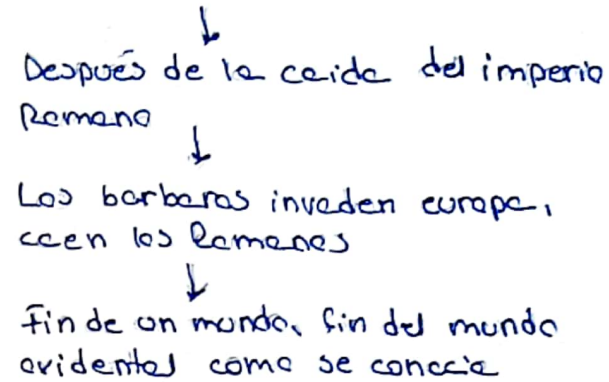 Después de la caida del imperio
Romano
Los barbaros invaden europa,
caen los Romanos
Fin de un mundo, fin del mundo
ovidental como se conocia